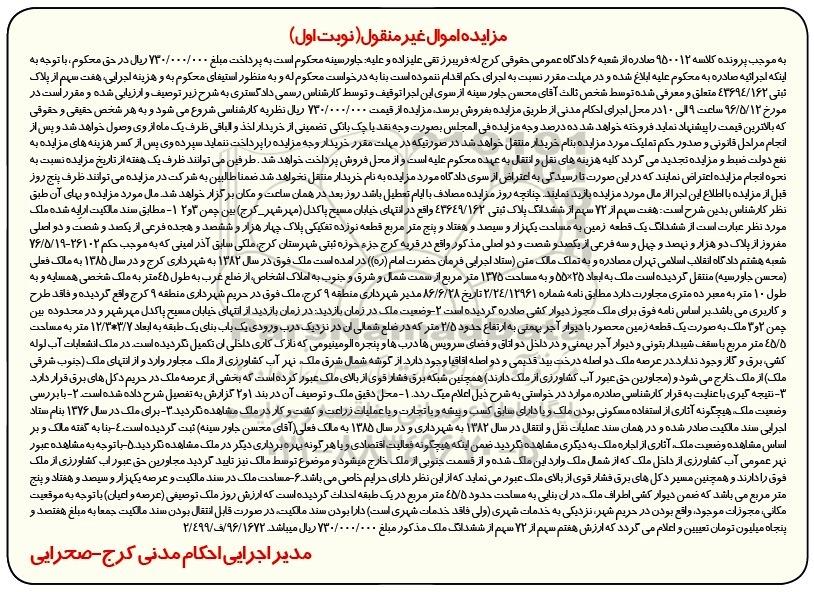 مزایده اموال غیر منقول( نوبت اول)
به موجب پرونده کلاسه ۹۵۰۰۱۲ صادره از شعبه ۶ دادگاه عمومی حقوقی کرج له: فریبرز تقی علیزاده و علیه: جاورسینه محکوم است به پرداخت مبلغ ۷۳۰/۰۰۰/۰۰۰ ریال در حق محکوم ، با توجه به
اینکه اجرائیه صادره به محکوم علیه ابلاغ شده و در مهلت مقرر نسبت به اجرای حکم اقدام ننموده است بنا به درخواست محکوم له و به منظور استیفای محکوم به و هزینه اجرایی، هفت سهم از پلاک
ثبتی ۴۳۶۹۴/۱۶۲ متعلق و معرفی شده توسط شخص ثالث آقای محسن جاور سینه از سوی این اجرا توقیف و توسط کارشناس رسمی دادگستری به شرح زیر توصیف و ارزیابی شده و مقرر است در
مورخ ۹۶/۵/۱۲ ساعت ۹ الی ۱۰ در محل اجرای احکام مدنی از طریق مزایده بفروش برسد، مزایده از قیمت ۷۳۰/۰۰۰/۰۰۰ ریال نظریه کارشناسی شروع می شود و به هر شخص حقیقی و حقوقی
که بالاترین قیمت را پیشنهاد نماید فروخته خواهد شد، ده درصد وجه مزایده فی المجلس بصورت وجه نقد یا چک بانکی تضمینی از خریدار اخذ و الباقی ظرف یک ماه از وی وصول خواهد شد و پس از
انجام مراحل قانونی و صدور حکم تملیک مورد مزایده بنام خریدار منتقل خواهد شد. در صورتیکه در مهلت مقرر خریدار وجه مزایده را پرداخت ننماید سپرده وی پس از کسر هزینه های مزایده به
نفع دولت ضبط و مزایده تجدید می گردد کلیه هزینه های نقل و انتقال به عهده محکوم علیه است و از محل فروش پرداخت خواهد شد . طرفین می توانند ظرف یک هفته از تاریخ مزایده نسبت به
نحوه انجام مزایده اعتراض نمایند که در این صورت تا رسیدگی به اعتراض از سوی دادگاه مورد مزایده به نام خریدار منتقل نخواهد شد ضمنا طالبین به شرکت در مزایده می توانند ظرف پنج روز
قبل از مزایده با اطلاع این اجرا از مال مورد مزایده بازدید نمایند. چنانچه روز مزایده مصادف با ایام تعطیل باشد روز بعد در همان ساعت و مکان برگزار خواهد شد. مال مورد مزایده و بهای آن طبق
نظر کارشناس بدین شرح است : هفت سهم از ۷۲ سهم از ششدانگ پلاک ثبتی ۴۳۶۴۹/۱۶۲ واقع در انتهای خیابان مسیح پاکدل (مهرشهر_کرج) بین چمن ۳و۲ ۱- مطابق سند مالکیت ارایه شده ملک
مورد نظر عبارت است از ششدانگ یک قطعه زمین به مساحت یکهزار و سیصد و هفتاد و پنج متر مربع قطعه نوزده تفکیکی پلاک چهار هزار و ششصد و هجده فرعی از یکصد و شصت و دو اصلی
مفروز از پلاک دو هزار و نهصد و چهل و سه فرعی از یکصد و شصت و دو اصلی مذکور واقع در قریه کرج جزء حوزه ثبتی شهرستان کرج، ملکی سابق آذر امینی که به موجب حکم ۲۶۱۰۲-۷۶/۵/۱۹
شعبه هشتم دادگاه انقلاب اسلامی تهران مصادره و به تملک مالک متن (ستاد اجرایی فرمان حضرت امام (ره)) در امده است ملک فوق در سال ۱۳۸۲ به شهرداری کرج و در سال ۱۳۸۵ به مالک فعلی
(محسن جاورسیه) منتقل گردیده است ملک به ابعاد ۲۵×۵۵ و به مساحت ۱۳۷۵ متر مربع از سمت شمال و شرق و جنوب به املاک اشخاص، از ضلع غرب به طول ۴۵متر به ملک شخصی همسایه و به
طول ۱۰ متر به معبر ده متری مجاورت دارد مطابق نامه شماره ۲/۲۴/۱۲۹۶۱ تاریخ ۸۶/۶/۲۸ مدیر شهرداری منطقه ۹ کرج، ملک فوق در حریم شهرداری منطقه ۹ کرج واقع گردیده و فاقد طرح
و کاربری می باشد.بر اساس نامه فوق برای ملک مجوز دیوار کشی صادره گردیده است ۲-وضعیت ملک در زمان بازدید: در زمان بازدید از انتهای خیابان مسیح پاکدل مهرشهر و در محدوده بین
چمن ۲و۳ ملک به صورت یک قطعه زمین محصور با دیوار آجر بهمنی به ارتفاع حدود ۲/۵ متر که در ضلع شمالی ان در نزدیک درب ورودی یک باب بنای یک طبقه به ابعاد ۳/۷*۱۲/۳ متر به مساحت
۴۵/۵ متر مربع با سقف شیبدار بتونی و دیوار آجر بهمنی و در داخل دو اتاق و فضای سرویس ها، درب ها و پنجره الومینیومی که نازک کاری داخلی ان تکمیل نگردیده است. در ملک انشعابات آب لوله
کشی، برق و گاز وجود ندارد.در عرصه ملک دو اصله درخت بید قدیمی و دو اصله اقاقیا وجود دارد. از گوشه شمال شرق ملک، نهر آب کشاورزی از ملک مجاور وارد و از انتهای ملک (جنوب شرقی
ملک) از ملک خارج می شود و (مجاورین حق عبور آب کشاورزی از ملک دارند) همچنین شبکه برق فشار قوی از بالای ملک عبور کرده است که بخشی از عرصه ملک در حریم دکل های برق قرار دارد.
۳- نتیجه گیری با عنایت به قرار کارشناسی صادره، موارد درخواستی به شرح ذیل اعلام میگردد. ۱- محل دقیق ملک و توصیف آن در بند ۱و۲ گزارش به تفصیل شرح داده شده است. ۲- با بررسی
وضعیت ملک، هیچگونه آثاری از استفاده مسکونی بودن ملک و یا دارای سابق کسب و پیشه و یا تجارت و یا عملیات زراعت و کشت و کار در ملک مشاهده نگردید. ۳- برای ملک در سال ۱۳۷۶ بنام ستاد
اجرایی سند مالکیت صادر شده و در همان سند عملیات نقل و انتقال در سال ۱۳۸۲ به شهرداری و در سال ۱۳۸۵ به مالک فعلی(آقای محسن جاور سینه) ثبت گردیده است.۴- بنا به گفته مالک و بر
اساس مشاهده وضعیت ملک، آثاری از اجاره ملک به دیگری مشاهده نگردید ضمن اینکه هیچگونه فعالیت اقتصادی و یا هر گونه بهره برداری دیگر در ملک مشاهده نگردید. ۵-با توجه به مشاهده عبور
نهر عمومی آب کشاورزی از داخل ملک که از شمال ملک وارد این ملک شده و از قسمت جنوبی از ملک خارج میشود و موضوع توسط مالک نیز تایید گردید مجاورین حق عبور اب کشاورزی از ملک
فوق را دارند و همچنین مسیر دکل های برق فشار قوی از بالای ملک عبور می نماید که از این نظر دارای حرایم خاصی می باشد. ۶-مساحت ملک در سند مالکیت و عرصه یکهزار و سیصد و هفتاد و پنج
متر مربع می باشد که ضمن دیوار کشی اطراف ملک، در ان بنایی به مساحت حدود ۴۵/۵ متر مربع در یک طبقه احداث گردیده است که ارزش روز ملک توصیفی (عرصه و اعیان) با توجه به موقعیت
مکانی، مجوزات موجود، واقع بودن در حریم شهر، نزدیکی به خدمات شهری (ولی فاقد خدمات شهری است) دارا بودن سند مالکیت، در صورت قابل انتقال بودن سند مالکیت جمعا به مبلغ هفتصد و
پنجاه میلیون تومان تعییین و اعلام می گردد که ارزش هفتم سهم از ۷۲ سهم از ششدانگ ملک مذکور مبلغ ۷۳۰/۰۰۰/۰۰۰ ریال میباشد. ۹۶/۱۶۷۲/ف/۲/۴۹۹
مدیر اجرایی احکام مدنی کرج-صحرایی